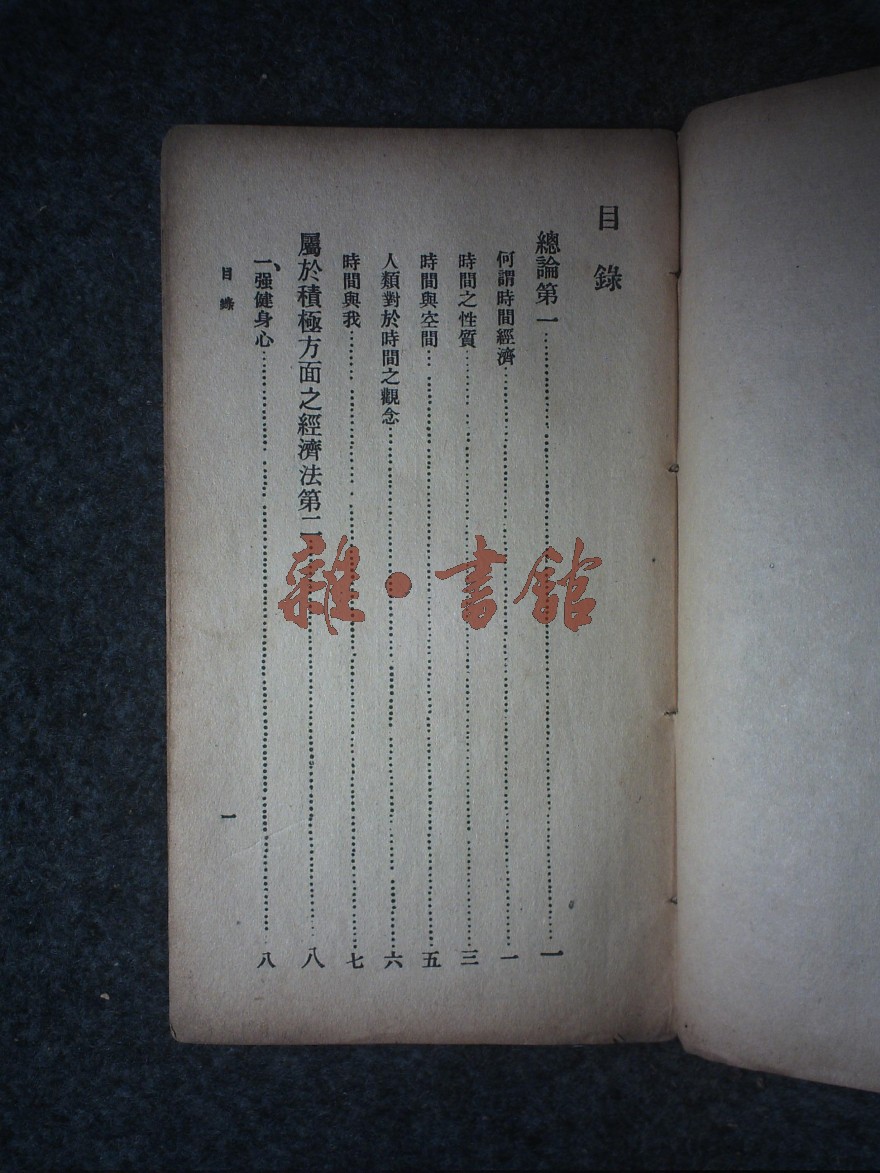 目錄
總論第一……一
何謂時間經濟……一
時間之性質……三
時間與空間……五
人類對於時間之觀念……六
時間與我……七
屬於積極方面之經濟法第二……八
一、强健身心……八
目錄
一
雜·書館